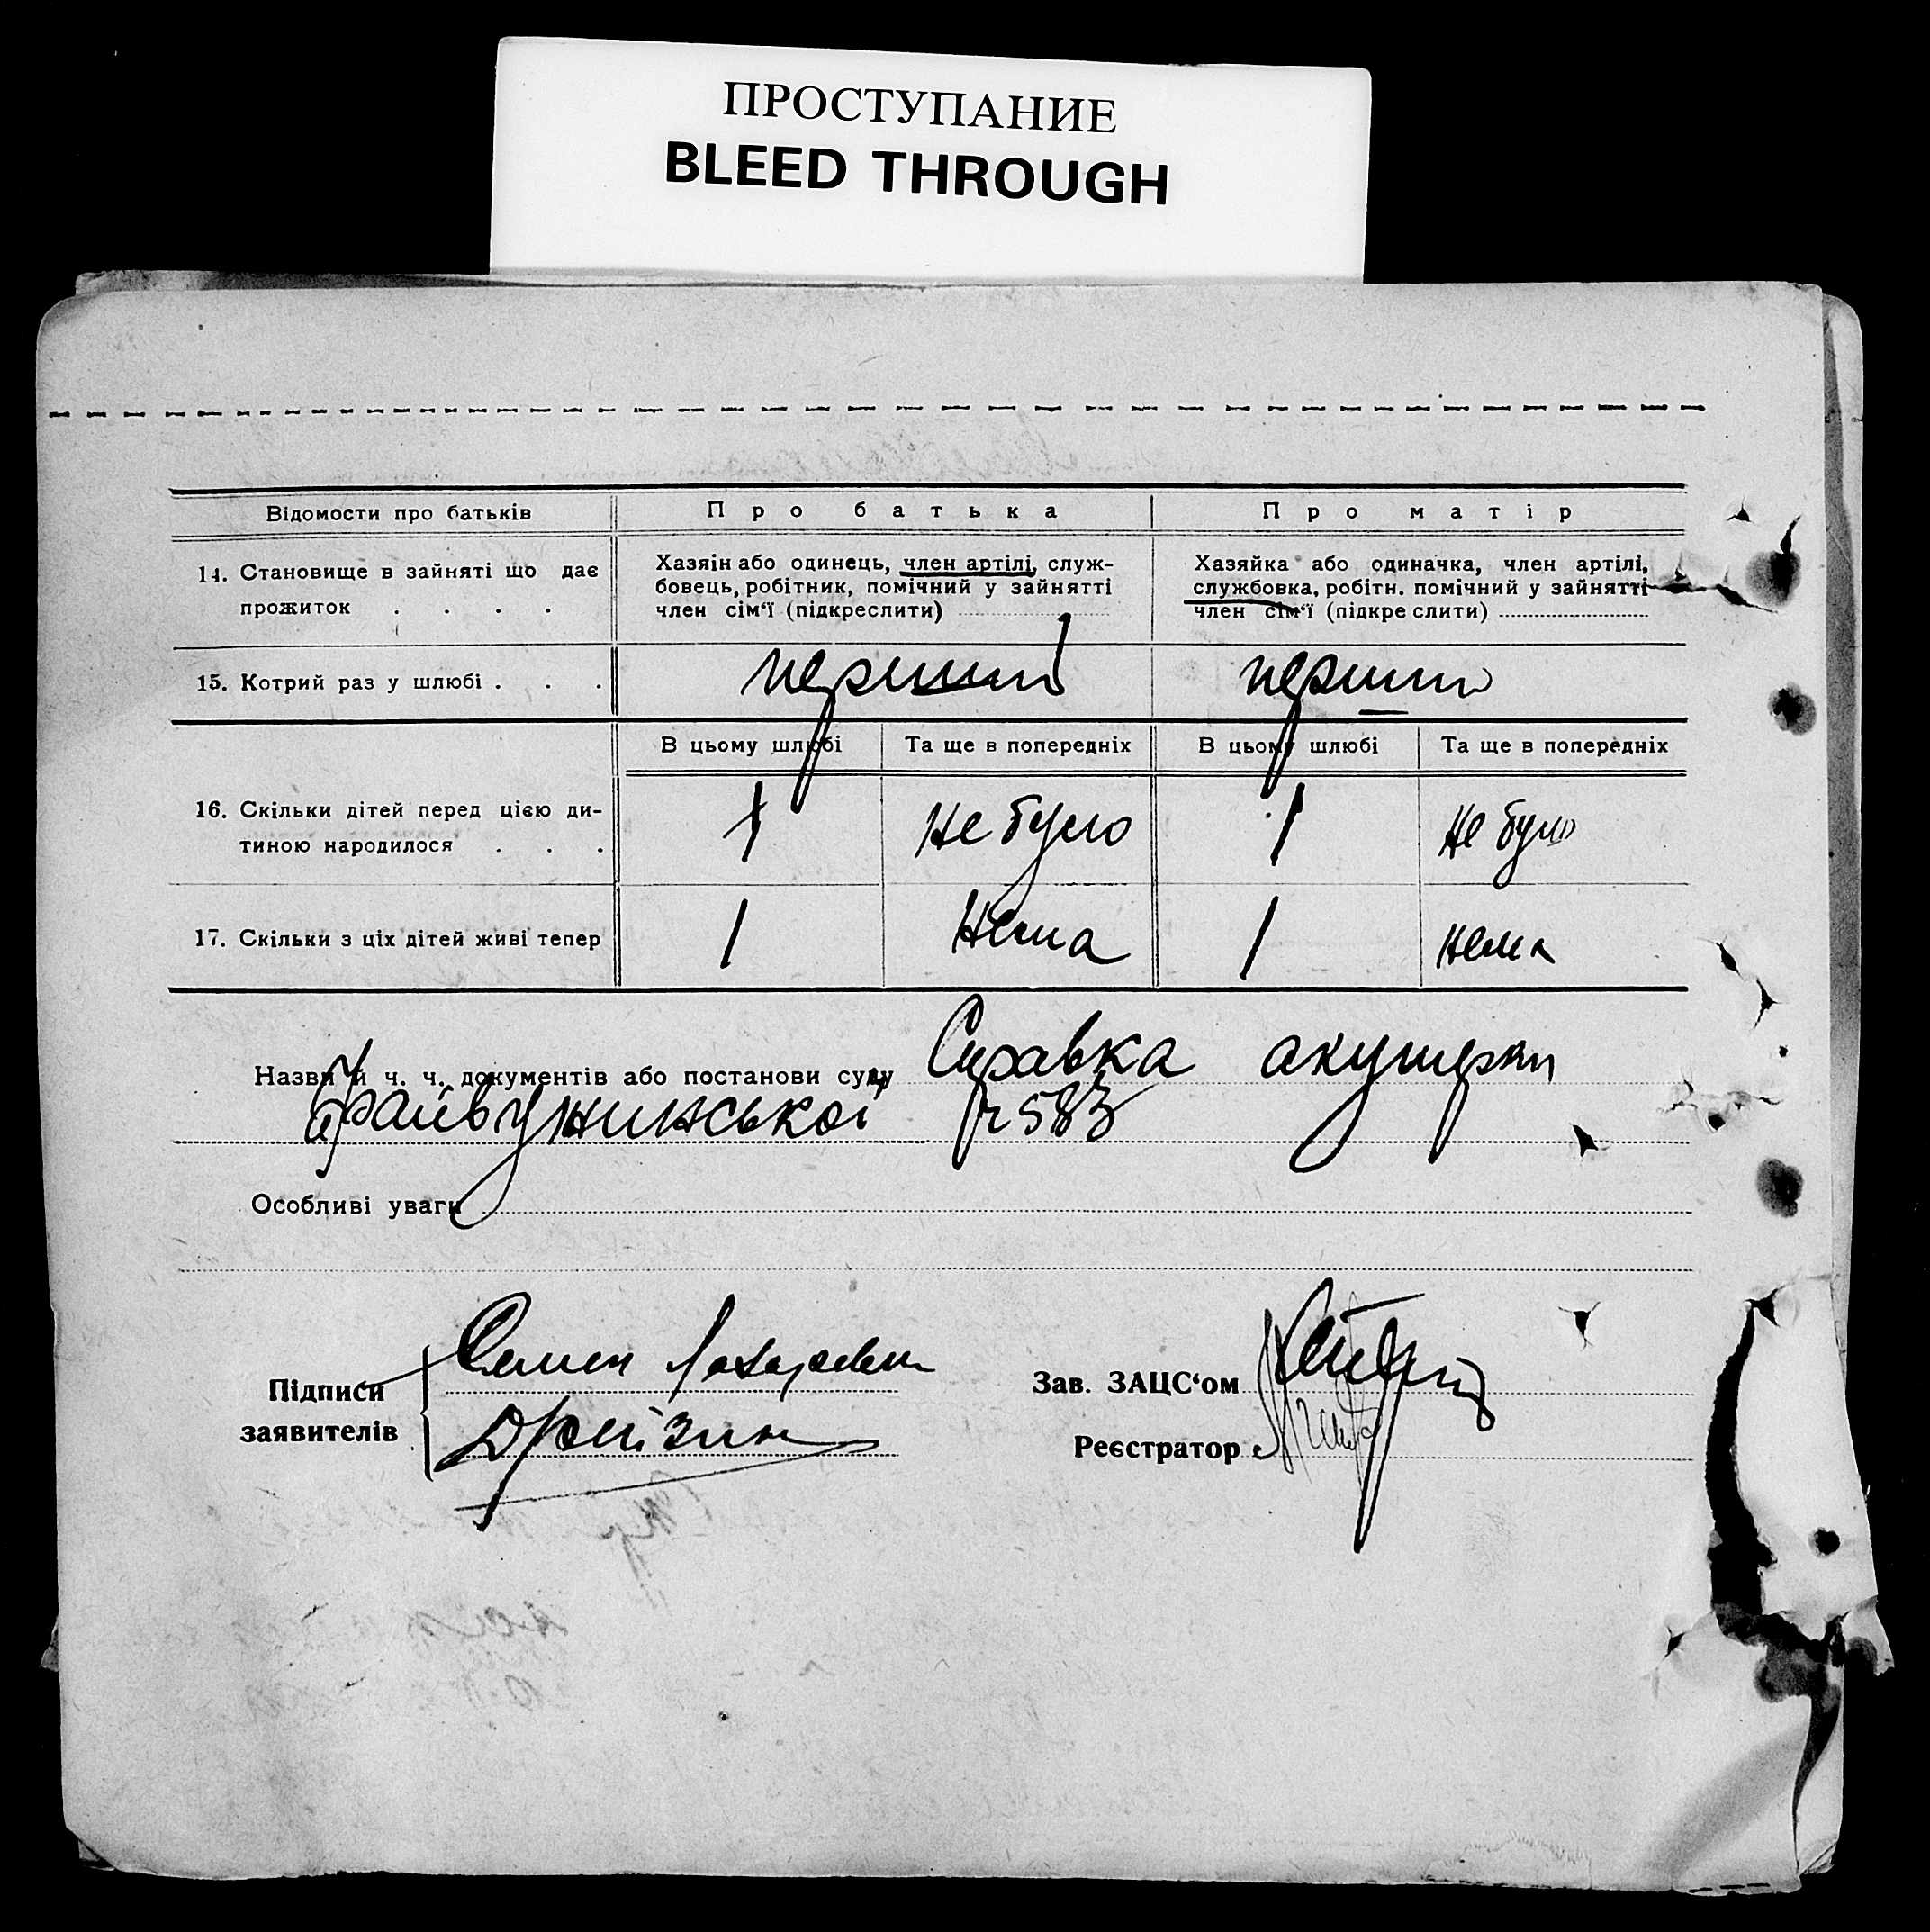 ПРОСТУПАНИЕ
BLEED THROUGH
Відомости про батьків Про батька Про матір
14. Становище в зайняті що дає прожиток . . . .
Хазяін або одинець, член артілі, служ-
бовець, робітник, помічний у зайнятті
член сім‘ї (підкреслити)
Хазяйка або одиначка, член артілі,
службовка, робітн. помічний у зайнятті
член сім‘ї (підкреслити)
15. Котрий раз у шлюбі . . . перший перший
В цьому шлюбі Та ще в попередніх В цьому шлюбі Та ще в попередніх
16. Скільки дітей перед цією ди-
тиною народилося . . . 1 не було 1 не було
17. Скільки з ціх дітей живі тепер 1 нема 1 нема
Назви й ч. ч. документів або постанови суду Справка акушерки
№ 583
Особливі уваги
Підписи
заявителів
Семен
Дрейзин
Зав. ЗАЦС‘ом
Реєстратор